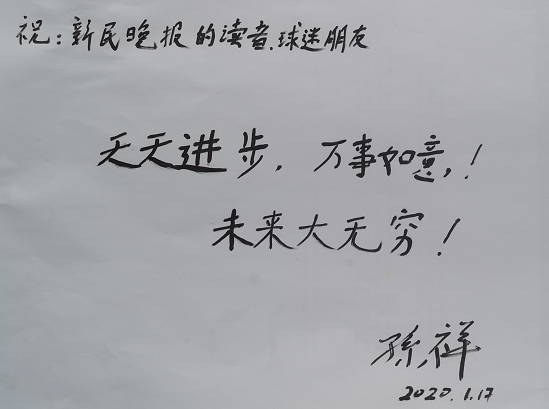 祝：新民晚报的读者、球迷朋友
天天进步，万事如意！
未来大无穷！
孙祥
2020.1.17